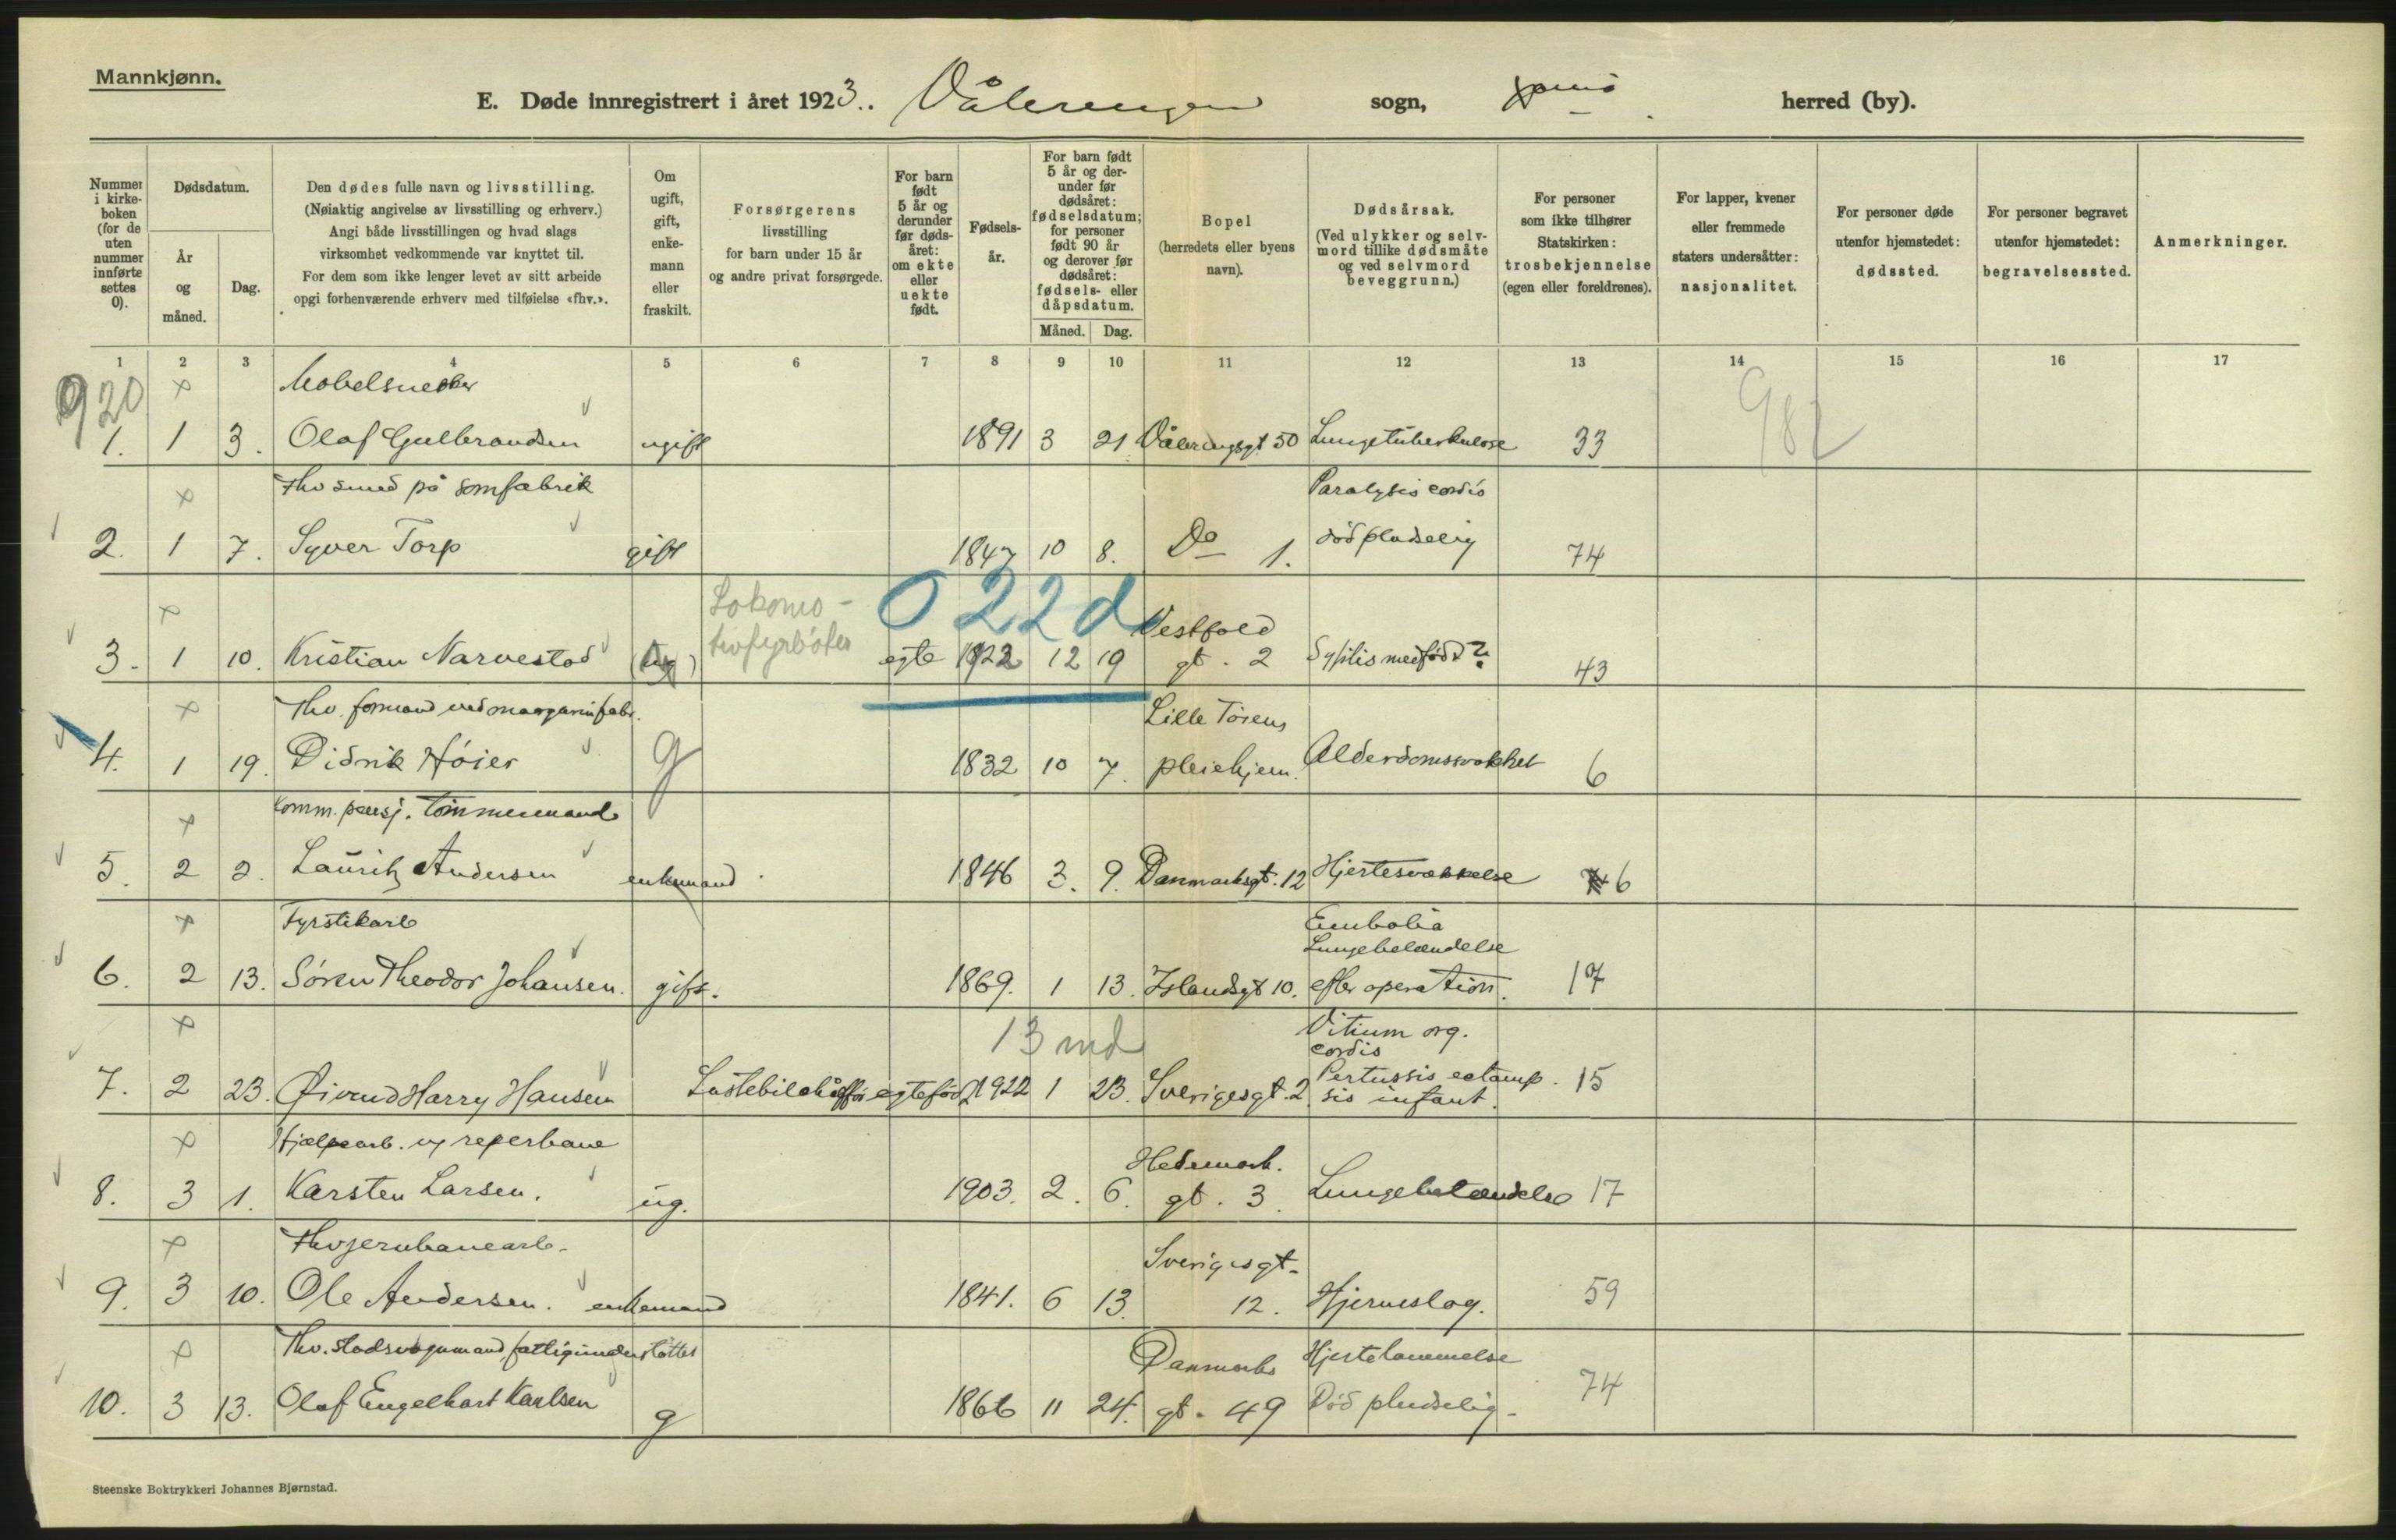 Mannkjønn.
E. Døde innregistrert i året 1923. Vålerengen sogn, herred (by).
Nummer i kirke-boken (for de uten nummer innførte settes 0).
Dødsdatum.
År og måned.
Dag.
Den dødes fulle navn og livsstilling.
(Nøiaktig angivelse av livsstilling og erhverv.)
Angi både livsstillingen og hvad slags
virksomhet vedkommende var knyttet til.
For dem som ikke lenger levet av sitt arbeide
opgi forhenværende erhverv med tilføielse «fhv.».
Om ugift, gift, enke-mann eller fraskilt.
Forsørgerens livsstilling for barn under 15 år og andre privat forsørgede.
For barn født 5 år og derunder før døds-året: om ekte eller uekte født.
Fødsels-år.
For barn født 5 år og der-under før dødsåret: fødselsdatum; for personer født 90 år og derover før dødsåret: fødsels- eller dåpsdatum.
Måned. Dag.
Bopel (herredets eller byens navn).
Dødsårsak. (Ved ulykker og selv-mord tillike dødsmåte og ved selvmord beveggrunn.)
For personer som ikke tilhører Statskirken: trosbekjennelse (egen eller foreldrenes).
For lapper, kvener eller fremmede staters undersåtter: nasjonalitet.
For personer døde utenfor hjemstedet: dødssted.
For personer begravet utenfor hjemstedet: begravelsessted.
Anmerkninger.
1 2 3 4 5 6 7 8 9 10 11 12 13 14 15 16 17
920 × Møbelsnekker 982
1. 1 3. Olaf Gulbrandsen ugift 1891 3 21 Vålerengsgt 50 Lungetuberkulose 33
× Fhv smed på sømfabrik Paralysis cordis
2. 1 7. Syver Torp gift 1847 10 8. Do 1. død pludselig 74
× Lokomo- 022d Vestfold
3. 1 10. Kristian Narvestad (ug) tivfyrbøter egte 1922 12 19 gt. 2 Syfilis medfødt? 43
× Fhv. formand ved margarinfabr. Lille Tøiens
4. 1 19. Didrik Høier g 1832 10 7. pleiehjem. Alderdomssvakhet 6
× Komm. pensj. Tømmermand
5. 2 2. Lauritz Andersen enkemand 1846 3. 9. Danmarksgt. 12 Hjertesvækkelse 6
× Fyrstikarb Embolia
Lungebetændelse
6. 2 13. Søren Theodor Johansen. gift. 1869. 1 13. Islandsgt 10. efter operation. 17
× 13 md Vitium org.
cordis
7. 2 23. Øivind Harry Hansen Lastebilchauffør egtefød 1922 1 23. Sverigesgt. 2. Pertussis eclamp. 15
sis infant.
× Hjælpearb. reperbane Hedemark.
8. 3 1. Karsten Larsen. ug. 1903. 2. 6. gt. 3. Lungebetændelse 17
× Fhv jernbanearb. Sverigesgt.
9. 3 10. Ole Andersen. enkemand 1841. 6 13. 12. Hjerneslag. 59
× Fhv. stadsvognmand, fattigunderstøttet Danmarks Hjertelammelse
10. 3 13. Olaf Engelhart Karlsen g 1866 11 24. gt. 49 Død pludselig. 74
Steenske Boktrykkeri Johannes Bjørnstad.